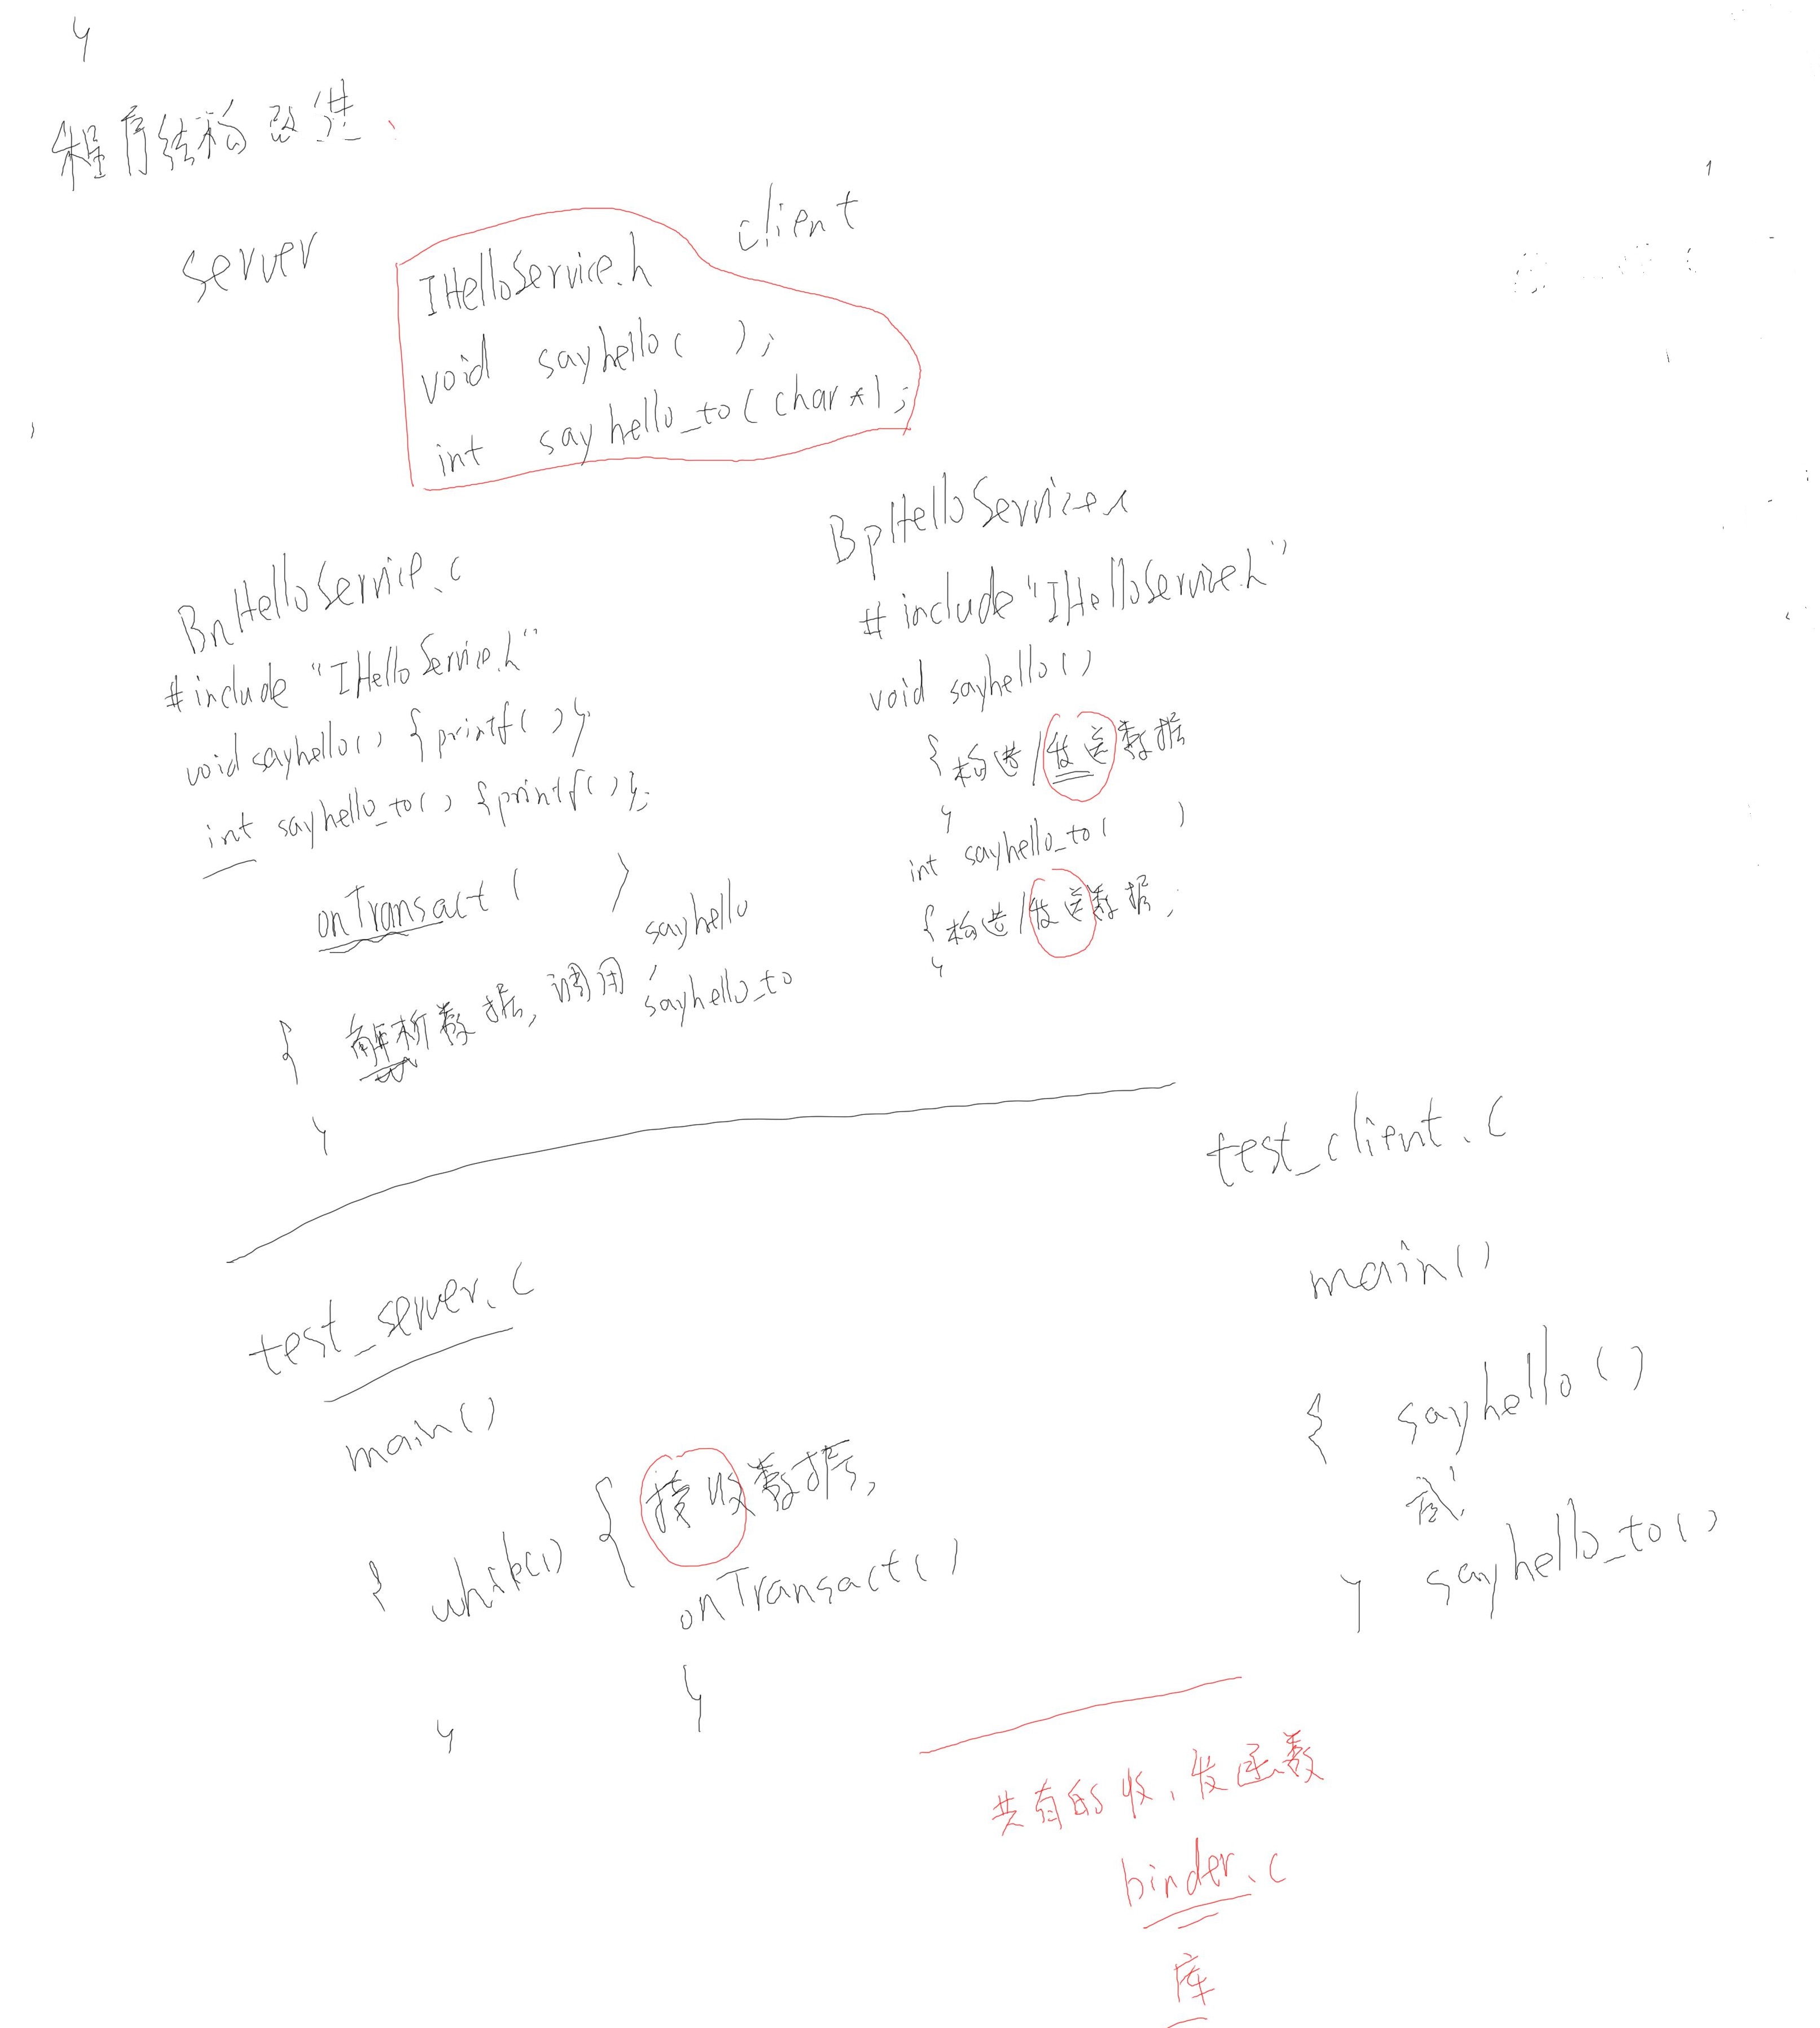 }
程序结构改进、
server
client
IHelloService.h
void sayhello( );
int sayhello_to(char*);
BnHelloService.c
#include "IHelloService.h"
void sayhello() {printf()};
int sayhello_to() {printf()};
onTransact( )
{ 解析数据, 调用 sayhello
, sayhello_to
}
BpHelloService.c
#include "IHelloService.h"
void sayhello()
{构造/发送数据
}
int sayhello_to( )
{构造/发送数据,
}
test_server.c
main()
{ while(1) { 接收数据,
onTransact()
}
}
test_client.c
main()
{ sayhello()
或
} sayhello_to()
共有的收、发函数
binder.c
库